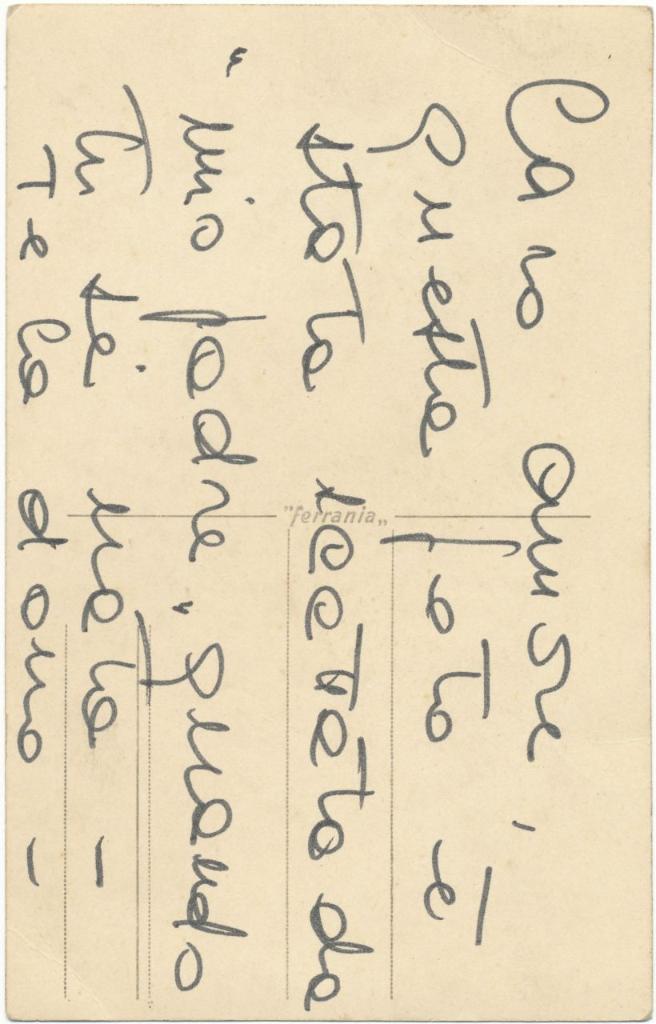 Cara
Questa foto è
stata scattata da
"mio padre" quando
Tu sei nata –
Te la dono –
"ferrania"